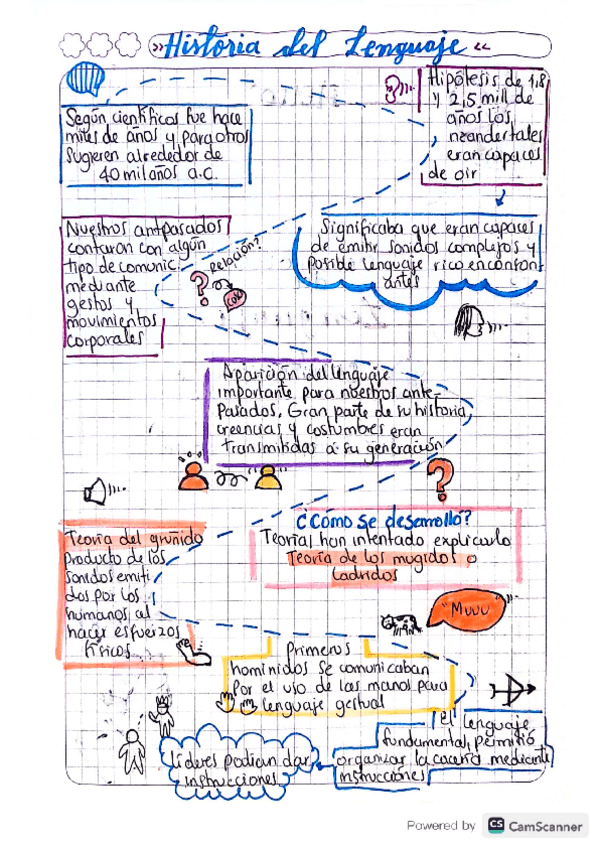 Historia del Lenguaje
Según científicos fue hace
miles de años y para otros
sugieren alrededor de
40 mil años a.c.
Hipótesis de 1,8
y 2,5 mill de
años los
neandertales
eran capaces
de oir
Significaba que eran capaces
de emitir sonidos complejos y
Posible lenguaje rico en conson
antes
Nuestros antpasados
contaran con algún
tipo de comunic.
mediante
gestos y
movimientos
corporales
Relación?
Aparición del lenguaje
importante para nuestros ante-
Pasados, Gran parte de su historia,
creencias y costumbres eran
transmitidas a su generación
¿Cómo se desarrolló?
Teorías han intentado explicarlo
Teoría de los mugidos o
ladridos
"Muuu"
Teoría del gruñido
producto de los
sonidos emiti
dos por los
humanos al
hacer esfuerzos
físicos
Primeros
hominidos se comunicaban
Por el uso de las manos para
lenguaje gestual
el lenguaje
fundamental, permitió
organizar la cacería mediante
instrucciones
Líderes podían dar
instrucciones
Powered by CS CamScanner